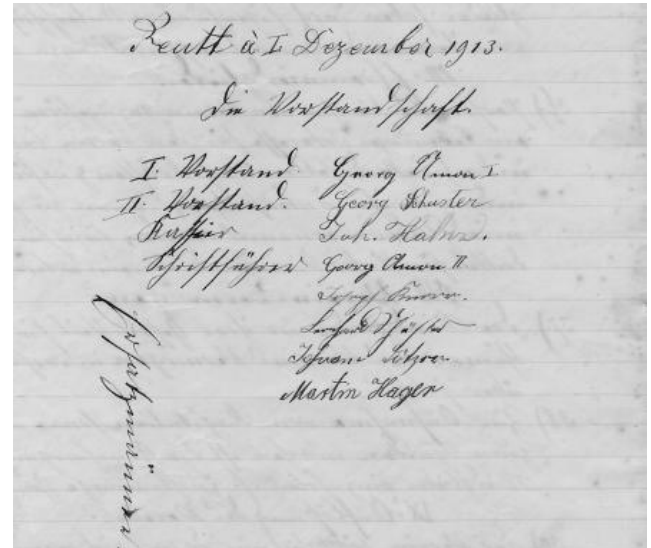 Reuth à I. Dezember 1913.
Die Vorstandschaft.
I. Vorstand. Georg Amon I
II. Vorstand. Georg Schuster
Kassier Joh. Hahn.
Schriftführer Georg Amon II.
Joseph Knorr.
Leonhard Schuster
Johann
Martin Hager
Ersatzmänner